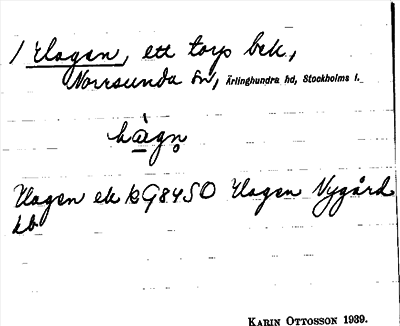 / Hagen, ett torp bek.,
Norrsunda sn, Ärlinghundra hd, Stockholms l.
hàgn̥
Hagen ek bG84SO Hagen Nygård
kb
KARIN OTTOSSON 1939.